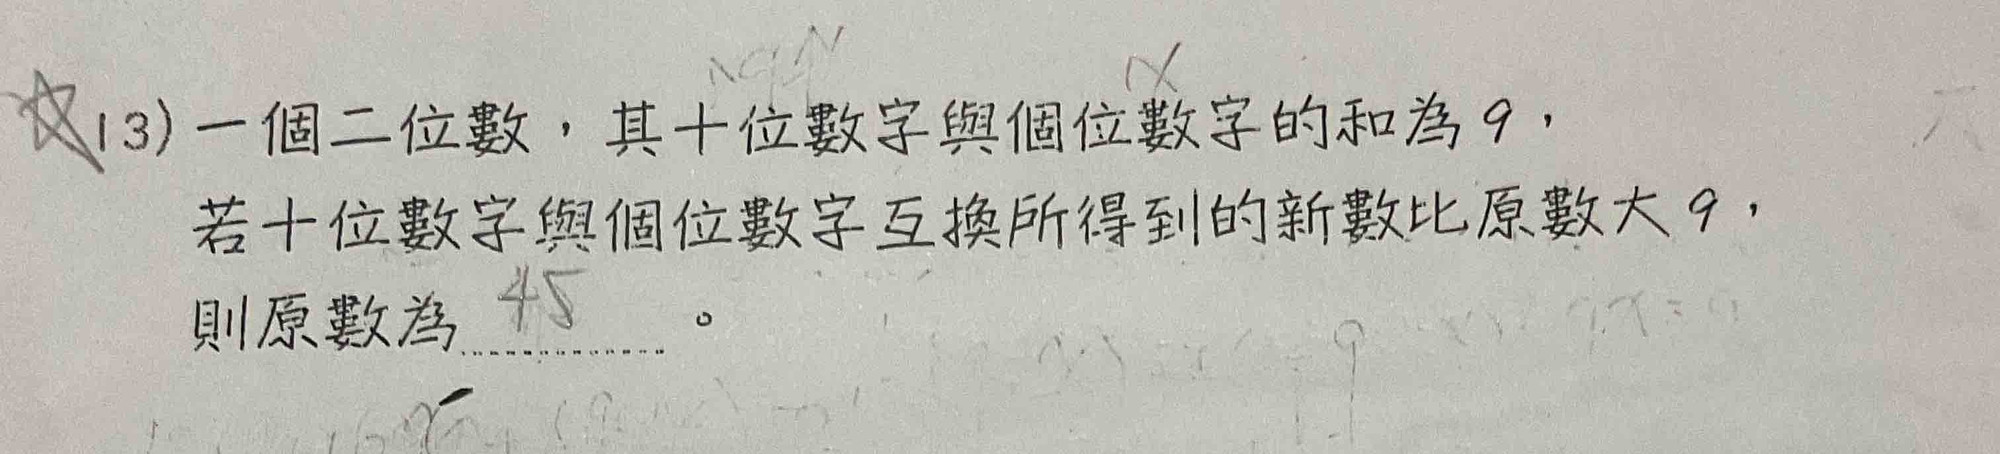 13) 一個二位數，其十位數字與個位數字的和為9，
若十位數字與個位數字互換所得到的新數比原數大9，
則原數為 45 。